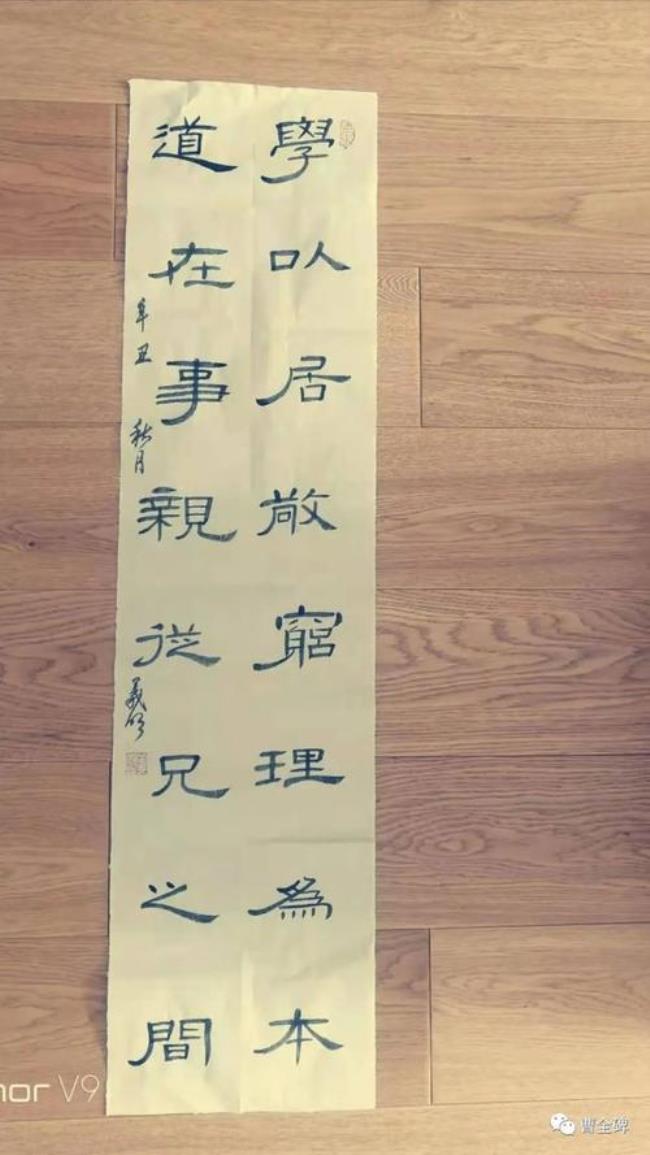 學以居敬窮理為本
道在事親從兄之間
辛丑 秋月
nor V9
曹全碑